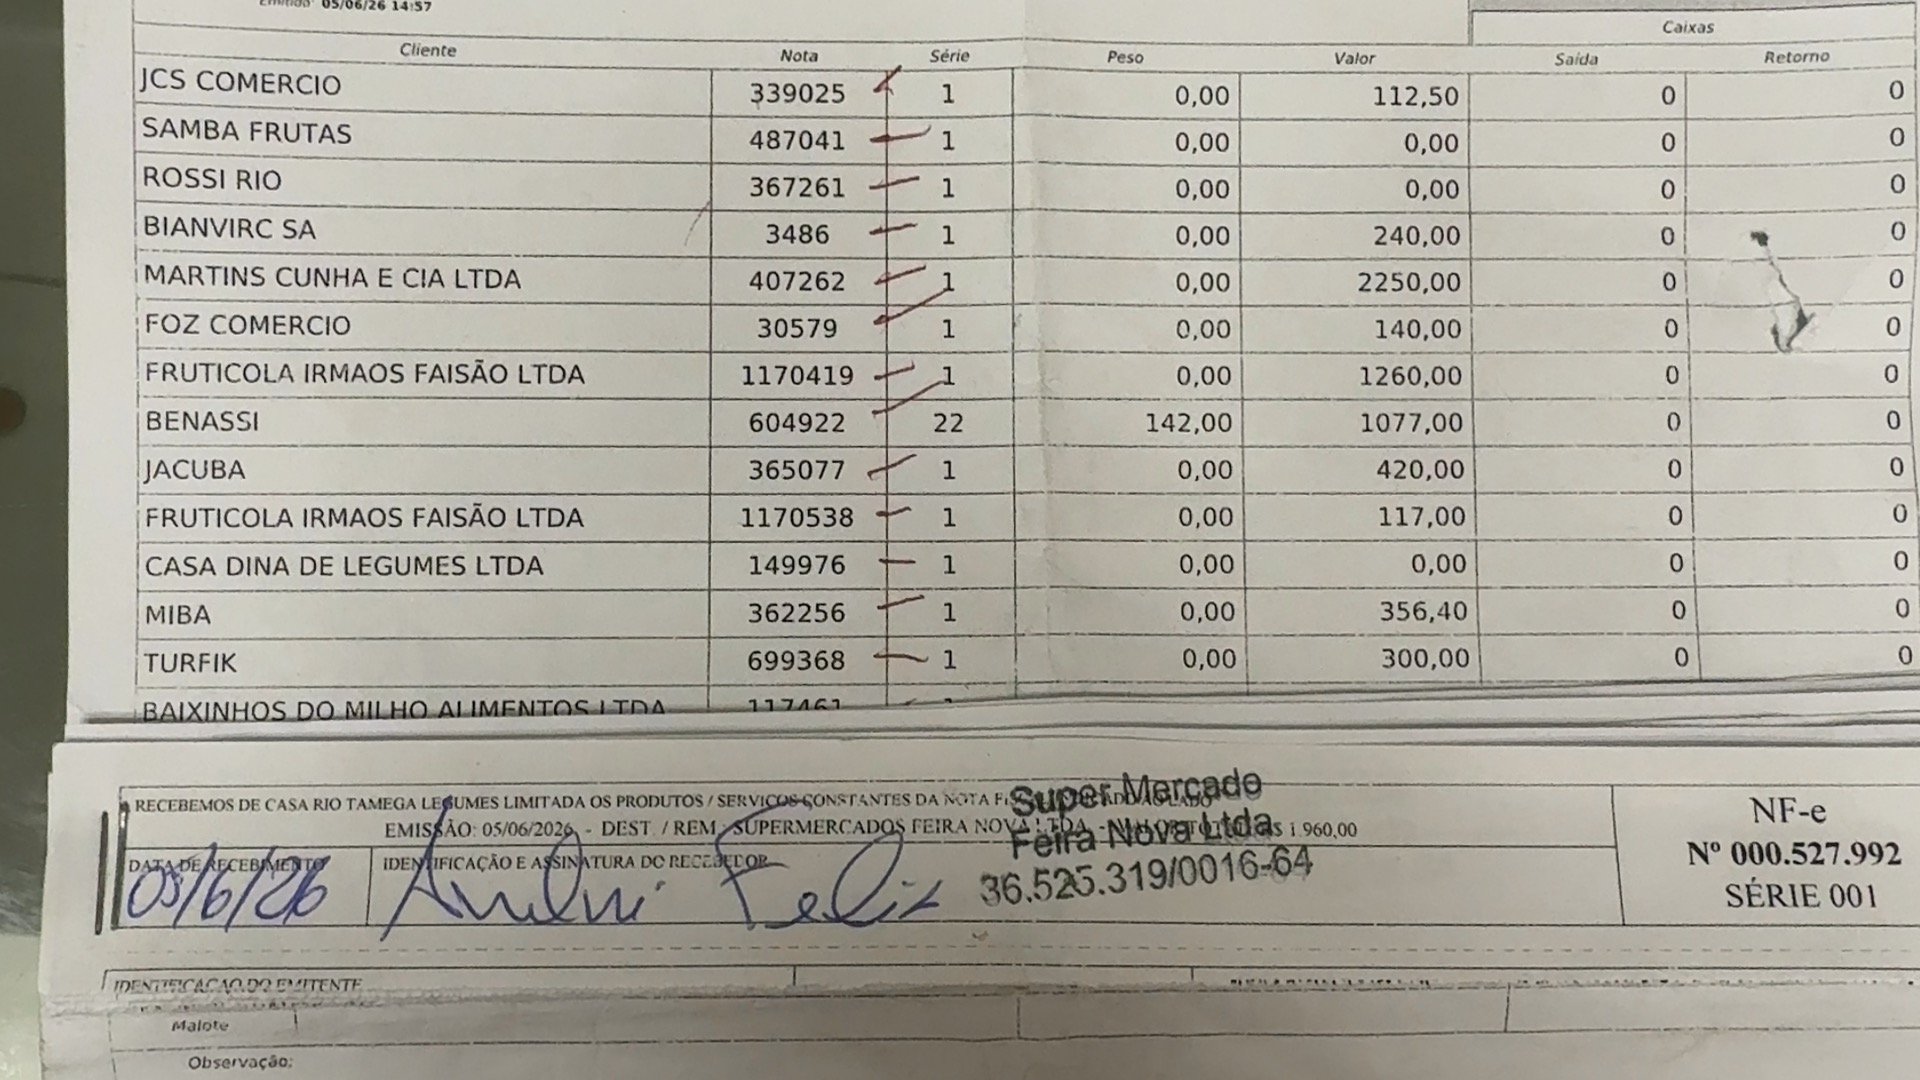 Emitido: 05/06/26 14:57
Caixas
Cliente Nota Série Peso Valor Saída Retorno
JCS COMERCIO 339025 1 0,00 112,50 0 0
SAMBA FRUTAS 487041 1 0,00 0,00 0 0
ROSSI RIO 367261 1 0,00 0,00 0 0
BIANVIRC SA 3486 1 0,00 240,00 0 0
MARTINS CUNHA E CIA LTDA 407262 1 0,00 2250,00 0 0
FOZ COMERCIO 30579 1 0,00 140,00 0 0
FRUTICOLA IRMAOS FAISÃO LTDA 1170419 1 0,00 1260,00 0 0
BENASSI 604922 22 142,00 1077,00 0 0
JACUBA 365077 1 0,00 420,00 0 0
FRUTICOLA IRMAOS FAISÃO LTDA 1170538 1 0,00 117,00 0 0
CASA DINA DE LEGUMES LTDA 149976 1 0,00 0,00 0 0
MIBA 362256 1 0,00 356,40 0 0
TURFIK 699368 1 0,00 300,00 0 0
BAIXINHOS DO MILHO ALIMENTOS LTDA 117461 1
RECEBEMOS DE CASA RIO TAMEGA LEGUMES LIMITADA OS PRODUTOS / SERVIÇOS CONSTANTES DA NOTA
EMISSÃO: 05/06/2026 - DEST. / REM.: SUPERMERCADOS FEIRA NOVA LTDA - 1.960,00
Super Mercado
Feira Nova Ltda
36.525.319/0016-64
DATA DE RECEBIMENTO IDENTIFICAÇÃO E ASSINATURA DO RECEBEDOR
05/6/26 Felix
NF-e
Nº 000.527.992
SÉRIE 001
IDENTIFICAÇÃO DO EMITENTE
Malote
Observação: